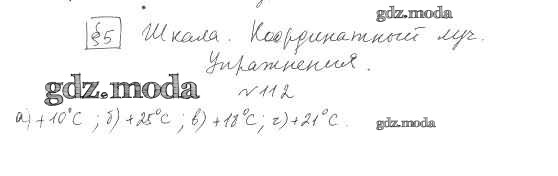 gdz.moda
§5 Шкала. Координатный луч.
Упражнения.
gdz.moda
№112
а) +10°C ; б) +25°C ; в) +18°C; г) +21°C.
gdz.moda